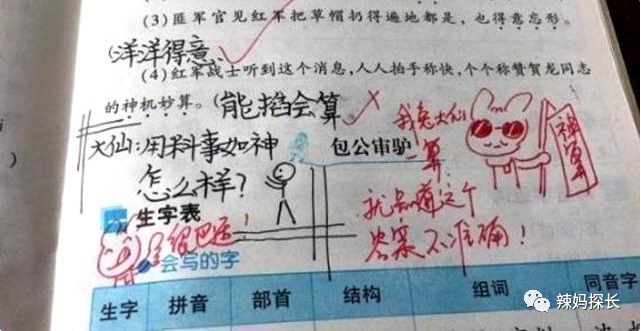 (3)匪军官见红军把草帽扔得遍地都是,也得意忘形。
(洋洋得意)
(4)红军战士听到这个消息,人人拍手称快,个个称赞贺龙同志
的神机妙算。(能掐会算)
大仙:用料事如神
怎么样?
包公审驴
我兔大仙
一算,
就知道这个
答案不准确!
神算
生字表
会写的字
生字 拼音 部首 结构 组词 同音字
辣妈探长